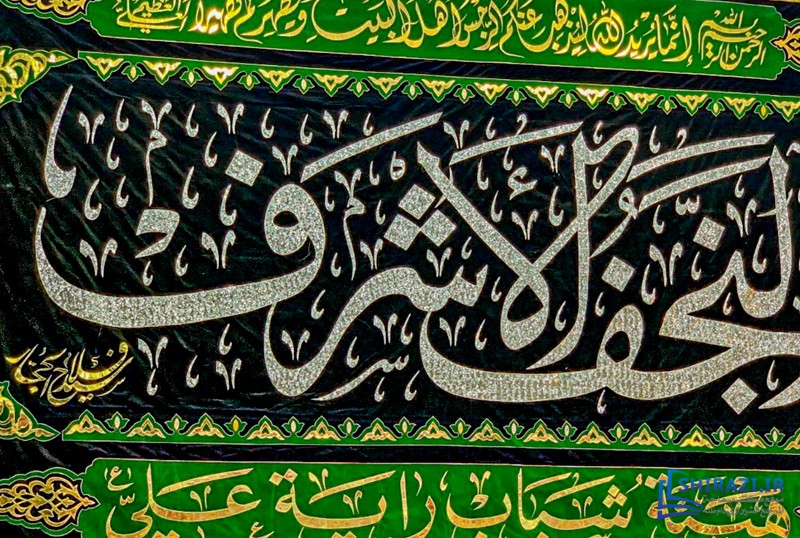 بسم الله الرحمن الرحيم إنما يريد الله ليذهب عنكم الرجس أهل البيت ويطهركم تطهيرا
النجف الأشرف
هيئة شباب راية علي (ع)
SHIRAZI.IR